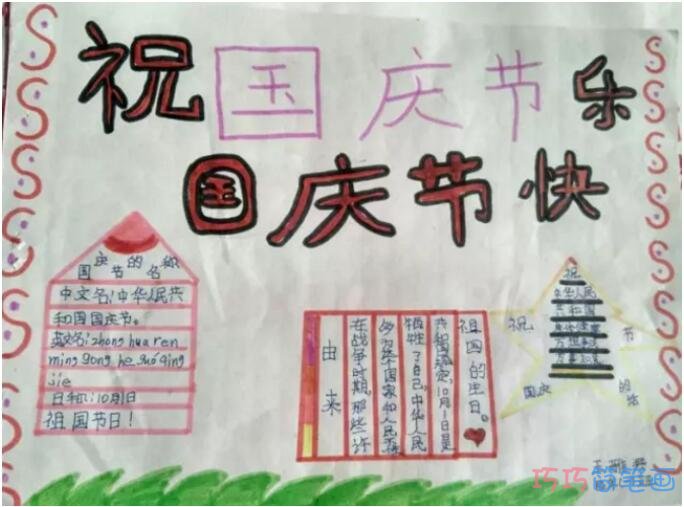 祝国庆节乐
国庆节快
国庆节的名称
中文名:中华人民共
和国国庆节。
英文名:zhong hua ren
ming gong he guó qing
jie
日期:10月1日
祖国节日!
由来
在战争时期,那些许
多为整个国家和人民
牺牲了自己,中华人民
共和国规定,10月1日是
祖国的生日。
祝
中华人民
共和国
身体健康
万事
祝
节
国庆
的
巧巧简笔画